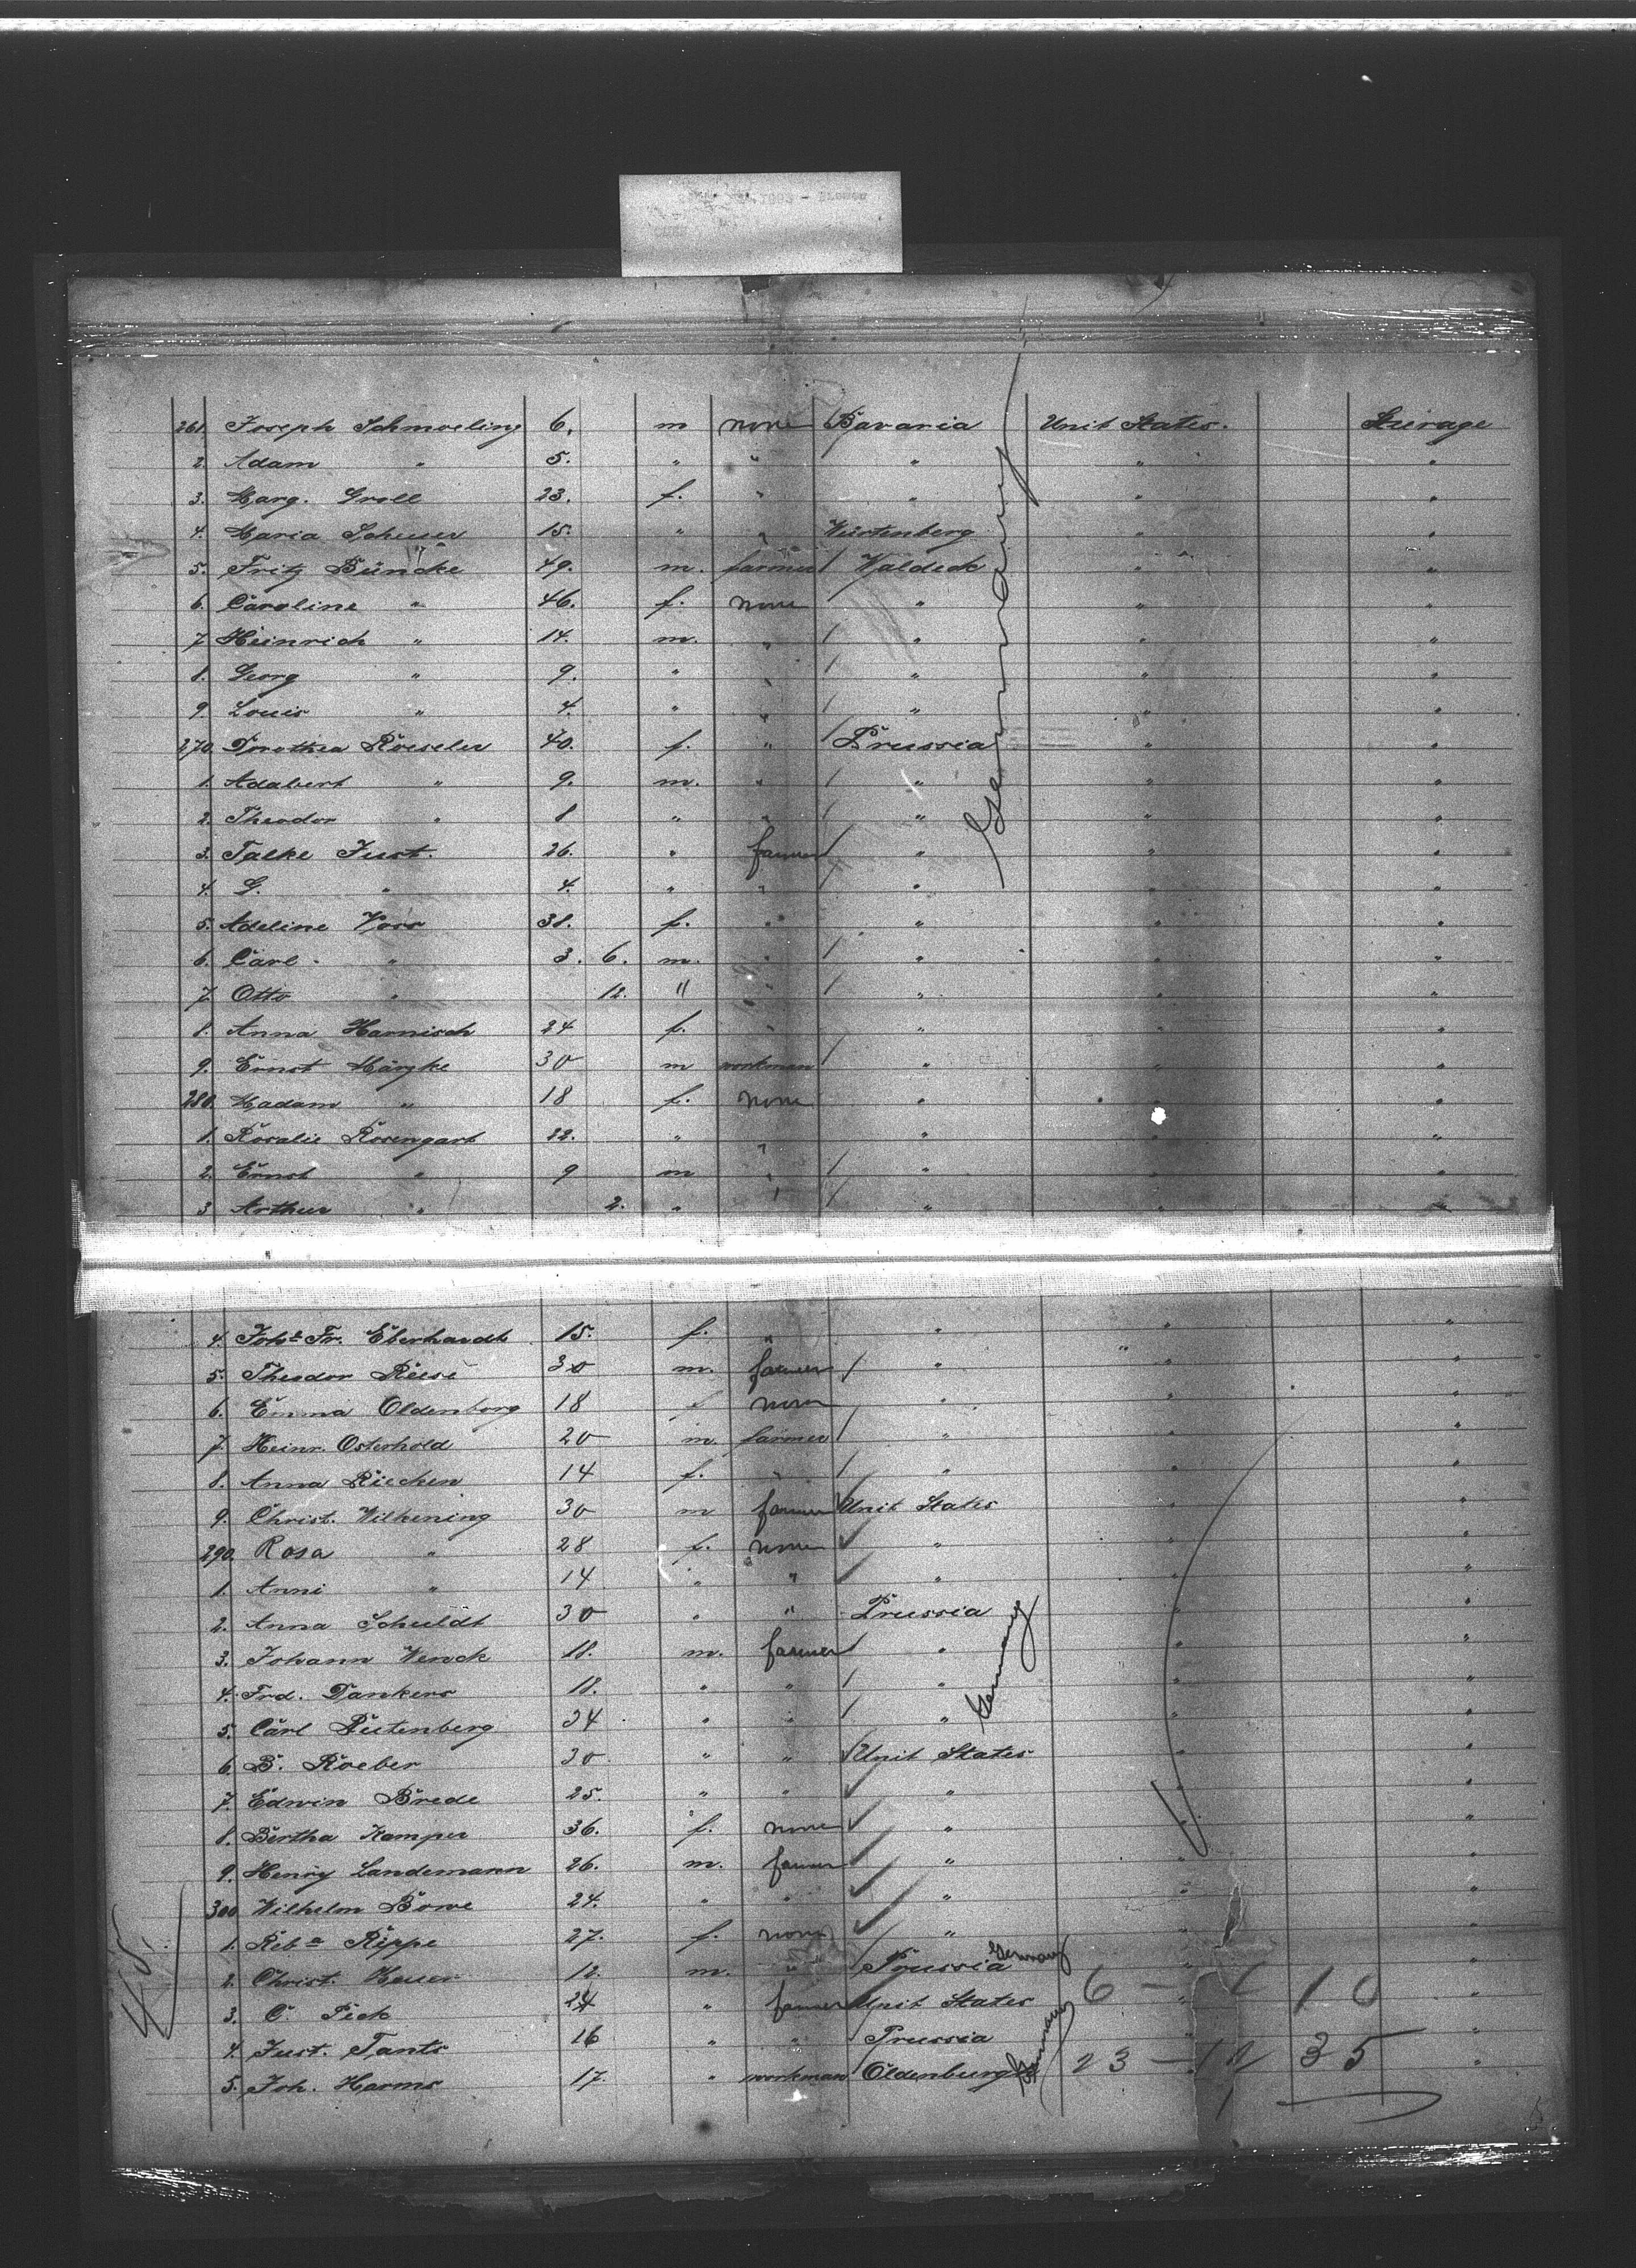 1883 - Bremen
261. Joseph Schmoeling 6. m none Bavaria Unit States. Steerage
2. Adam " 5. " " " " "
3. Marg. Groll 23. f. " " " "
4. Maria Scheuer 15. " " Würtenberg " "
5. Fritz Büncke 49. m. farmer / Waldeck " "
6. Caroline " 46. f. none " " "
7. Heinrich " 14. m. " / " " "
8. Georg " 9. " " / " " "
9. Louis " 4. " " / " " "
270. Dorothea Roeseler 40. f. " / Prussia " "
1. Adalbert " 9. m. " / " " "
2. Theodor " 8 " " / " " "
3. Talke Just. 26. " farmer / " " "
4. G. " 4. " " / " " "
5. Adeline Voss 38. f. " " " "
6. Carl " 3. 6. m. " / " " "
7. Otto " 12. " " / " " "
8. Anna Harnisch 24 f. " " " "
9. Ernst Märgke 30 m workman / " " "
280. Madam " 18 f. none " " "
1. Rosalie Rosengart 22. " " " " "
2. Ernst " 9 m " / " " "
3 Arthur " 2. " " / " " "
Germany
4. Joh.e Fr. Eberhardt 15. f. " " " "
5. Theodor Reese 30 m. farmer / " " "
6. Emma Oldenborg 18 f none " " "
7. Heinr. Osterhold 20 m. farmer / " " "
8. Anna Riecken 14 f. " / " " "
9. Christ. Wilkening 30 m farmer Unit States " "
290. Rosa " 28 f. none " " "
1. Anni " 14 " " " " "
2. Anna Schuldt 30 " " Prussia " "
3. Johann Wenck 18. m. farmer / " " "
4. Frd. Dankers 18. " " / " " "
5. Carl Rutenberg 24 " " / " " "
Germany
6. B. Roeber 30 " " Unit States " "
7. Edwin Brede 25. " " " " "
8. Bertha Kamper 36. f. none " " "
9. Henry Landemann 26. m. farmer " " "
300 Wilhelm Böwe 24. " " " " "
1. Reb.a Rippe 27. f. none " " "
2. Christ. Heuer 12. m. " Prussia Germany " "
3. C. Pick 24 " farmer Unit States 6 - 10 "
4. Just. Tants 16 " " Prussia " "
5. Joh. Harms 17. " workman Oldenburg Germany 23 - 12 35 "